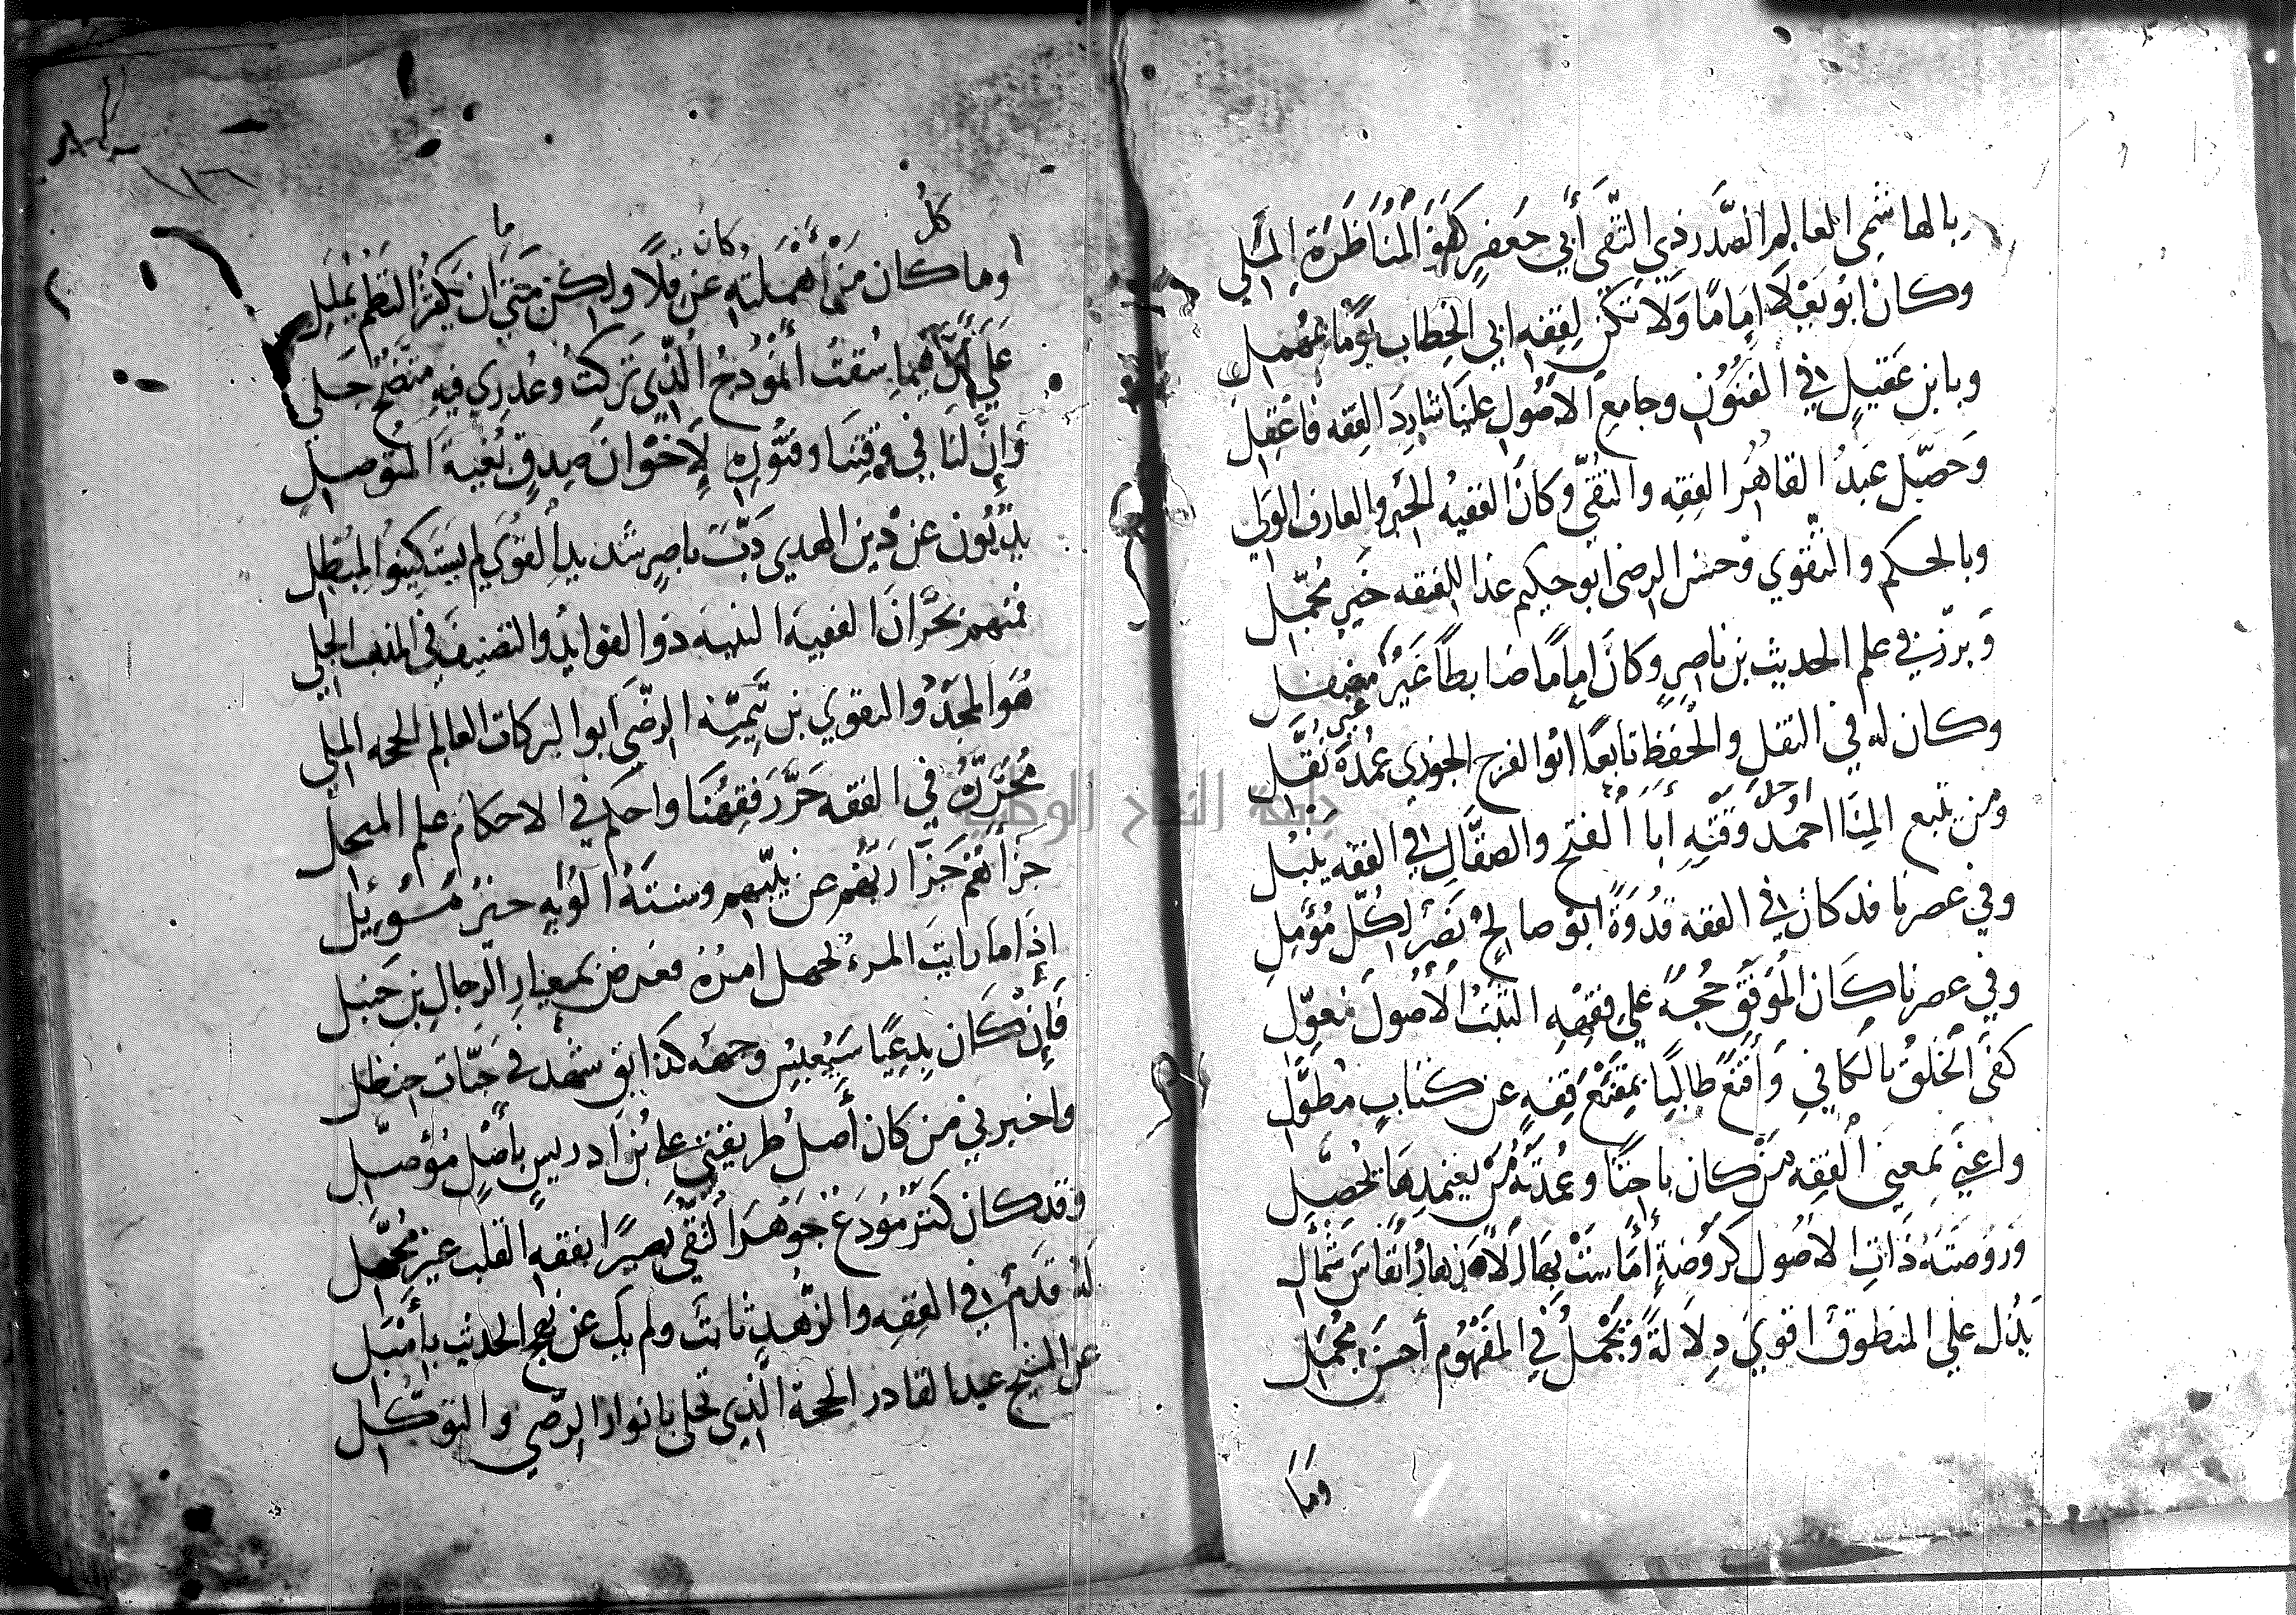 وبالهاشمي العالم الصدر ذي التقى أبي جعفر كهف المناظرة الملي
وكان ابو يعلا إماما ولا تكن لفقه ابي الخطاب يوما بمهمل
وبابن عقيل في الفنون وجامع الأصول علينا شارد الفقه فاعقل
وحصّل عبد القاهر الفقه والتقى وكان الفقيه الحبر والعارف الولي
وبالحكم والتقوى وحسن الرضى ابو حكيم غدا للفقه خير مجمّل
وبرّز في علم الحديث بن ناصر وكان إماما ضابطا غير مغفل
وكان له في النقل والحفظ تابعا ابو الفرج الجوزي عمدة نقّل
ومن يتبع المنا احمد وقته أبا الفتح والصقّال في الفقه ينبل
وفي عصرنا قد كان في الفقه قدوة ابو صالح نصر لكل مؤمل
وفي عصرنا كان الموفق حجة على فقهه الثبت الأصول معوّل
كفى الخلق بالكافي وأقنع طالبا بمقنع فقه عن كتاب مطوّل
واغنى بمغني الفقه من كان باحثا وعمدته من يعتمدها يحصّل
وروضته ذات الاصول كروضة أماست بها الأزهار أنفاس شمأل
يدل على المنطوق اقوى دلالة وتحمل في المفهوم أحسن محمل
وما
وما كان من أهملته عن قلا ولكن متى ان يكثر النظم يملل
كل
كان
ما
على فيما سقت أنموذج الذي تركت وعذري فيه متضح جلي
وإن لنا في وقتنا وفتوره لإخوان صدق بغية المتوصل
يذبون عن دين الهدى ذبّ ناصر شديد القوى لم يستكينوا لمبطل
فمنهم بحران الفقيه النبيه ذو الفوايد والتصنيف في المذهب الجلي
هو المجد والتقوى بن تيمية الرضى ابو البركات العالم الحجه الملي
محرره في الفقه حرّر فقهنا واحكم في الاحكام علم المبجل
جزاهم جزا ربهم عن نبيهم وسنته آلوا به خير موئل
إذا ما رايت المرء تجهل امره فعرض بمعيار الرجال بن حنبل
فإن كان بدعيا سيعبس وجهه كذائق شهد في جنات حنظل
واخبرني من كان أصل طريقتي علي بن ادريس بأصل مؤصّل
وقد كان كنز مودع جوهر التقى بصيرا بفقه القلب غير مجهّل
له قدم في الفقه والزهد ثابت ولم يك عن نهج الحديث بأميل
عن الشيخ عبد القادر الحجة الذي تحلى بانوار الرضى والتوكّل